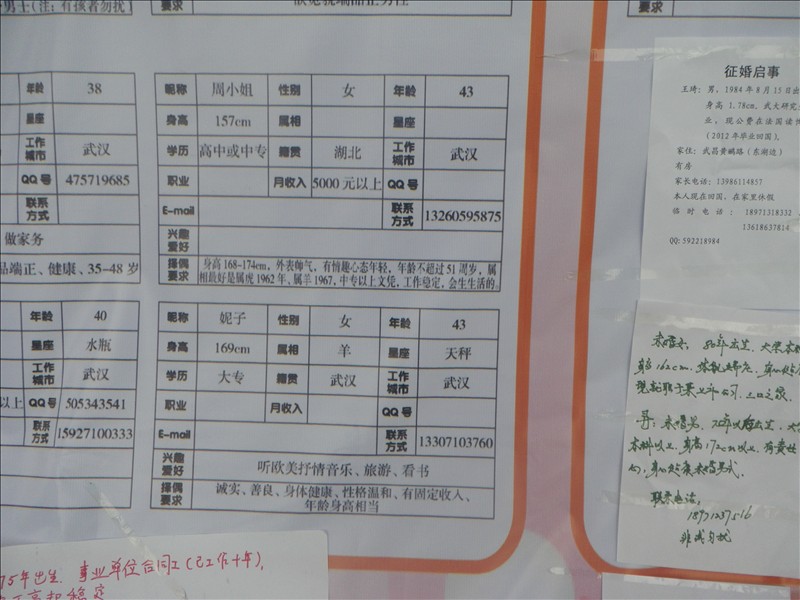 男士(注：有孩者勿扰)
要求
要求
年龄 38
星座
工作城市 武汉
QQ号 475719685
联系方式
做家务
品端正、健康、35-48岁
年龄 40
星座 水瓶
工作城市 武汉
以上 QQ号 505343541
联系方式 15927100333
昵称 周小姐 性别 女 年龄 43
身高 157cm 属相 星座
学历 高中或中专 籍贯 湖北 工作城市 武汉
职业 月收入 5000元以上 QQ号
E-mail 联系方式 13260595875
兴趣爱好
择偶要求 身高168-174cm，外表帅气，有情趣心态年轻，年龄不超过51周岁，属
相最好是属虎1962年、属羊1967，中专以上文凭，工作稳定，会生生活的。
昵称 妮子 性别 女 年龄 43
身高 169cm 属相 羊 星座 天秤
学历 大专 籍贯 武汉 工作城市 武汉
职业 月收入 QQ号
E-mail 联系方式 13307103760
兴趣爱好 听欧美抒情音乐、旅游、看书
择偶要求 诚实、善良、身体健康、性格温和、有固定收入、
年龄身高相当
征婚启事
王琦：男，1984年8月15日出
身高 1.78cm，武大研究
业，现公费在法国读
(2012年毕业回国)。
家住：武昌黄鹂路（东湖边）
有房
家长电话：13986114857
本人现在回国，在家里休假
临时电话：18971318332
13618637814
QQ:592218984
未婚女，80年出生，大学本科
身高162cm，
现就职于某上市公司，三口之家。
寻：未婚男，
本科以上，身高172cm以上，有责任
联系电话：
18971237516
非诚勿扰
75年出生，事业单位合同工(已工作十年)，